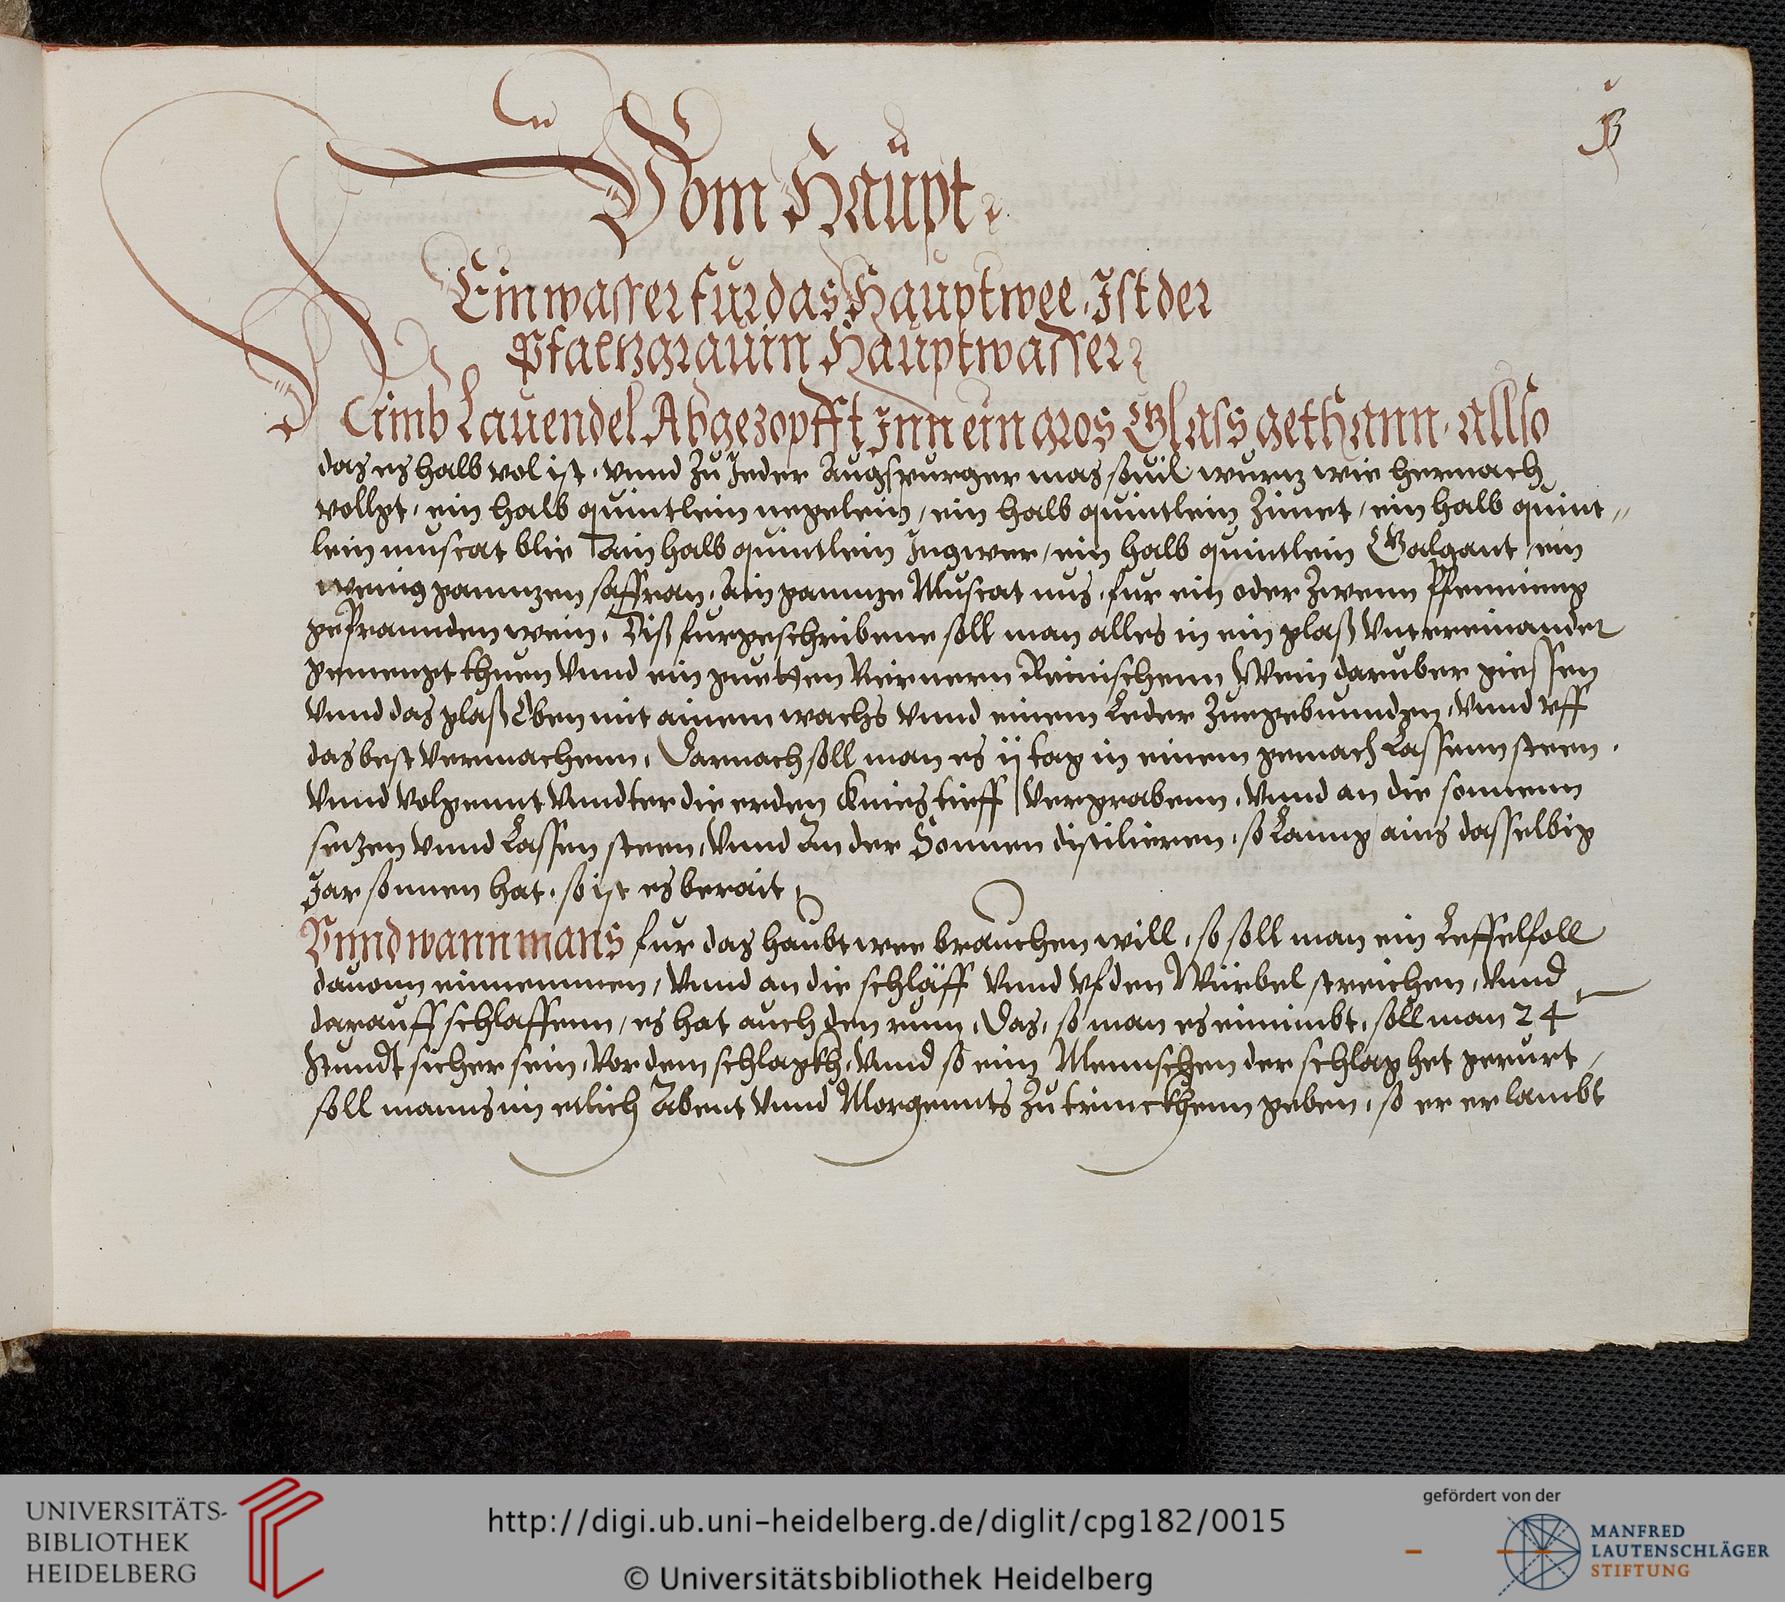 Vom Haupt
Ein wasser fur das Hauptwee, Ist der
Pfaltzgrauin Hauptwasser
Nimb Lauendel Abgezopfft Inn ein gros Glass gethann, allso
das es halb vol ist, vnnd Zu Jeder Augspurger mas souil wurtz wie hernach
vollgt, ein halb quintlein negelein, ein halb quintlein Zimet, ein halb quint„
lein muscat blie ain halb quintlein Ingwer, ein halb quintlein Galgant, ein
wenig ganntzen saffran, Ain ganntze Muscat nus, fur ein oder Zwenn Pfenning
geprannden wein, Diß furgeschribene soll man alles in ein glaß Vntereinander
gemengt thuen Vnnd ein guetten Reinischenn Wein daruber giessen
Vnnd das glaß Oben mit ainem wachs Vnnd einem Leder Zuegebunndenn, Vnnd vff
das best Vermachenn, Darnach soll man es ij tag in einem gemach Lassenn steen,
Vnnd Volgennt Vnndter die erden Knies tieff Vergrabenn, Vnnd an die sonnenn
setzen Vnnd Lassen steen, Vnnd An der Sonnen distilieren, so Lanng ains dasselbig
Jar sonnen hat, so ist es berait
Vnnd wann mans fur das haubt wee brauchen will, so soll man ein Leffelfoll
dauonn einnemmen, Vnnd an die schläff Vnnd Vf den Würbel streichen, Vnnd
darauff schlaffenn, es hat auch den rum, Das, so man es einimbt, soll man 24
Stundt sicher sein, Vor dem schlagkh, Vnnd so ein Mennschen der schlag het gerurt,
soll manns im etlich Abent Vnnd Morgennts Zu trinckhenn geben, so er erlambt
UNIVERSITÄTS-
BIBLIOTHEK
HEIDELBERG
http://digi.ub.uni-heidelberg.de/diglit/cpg182/0015
© Universitätsbibliothek Heidelberg
gefördert von der
MANFRED
LAUTENSCHLÄGER
STIFTUNG